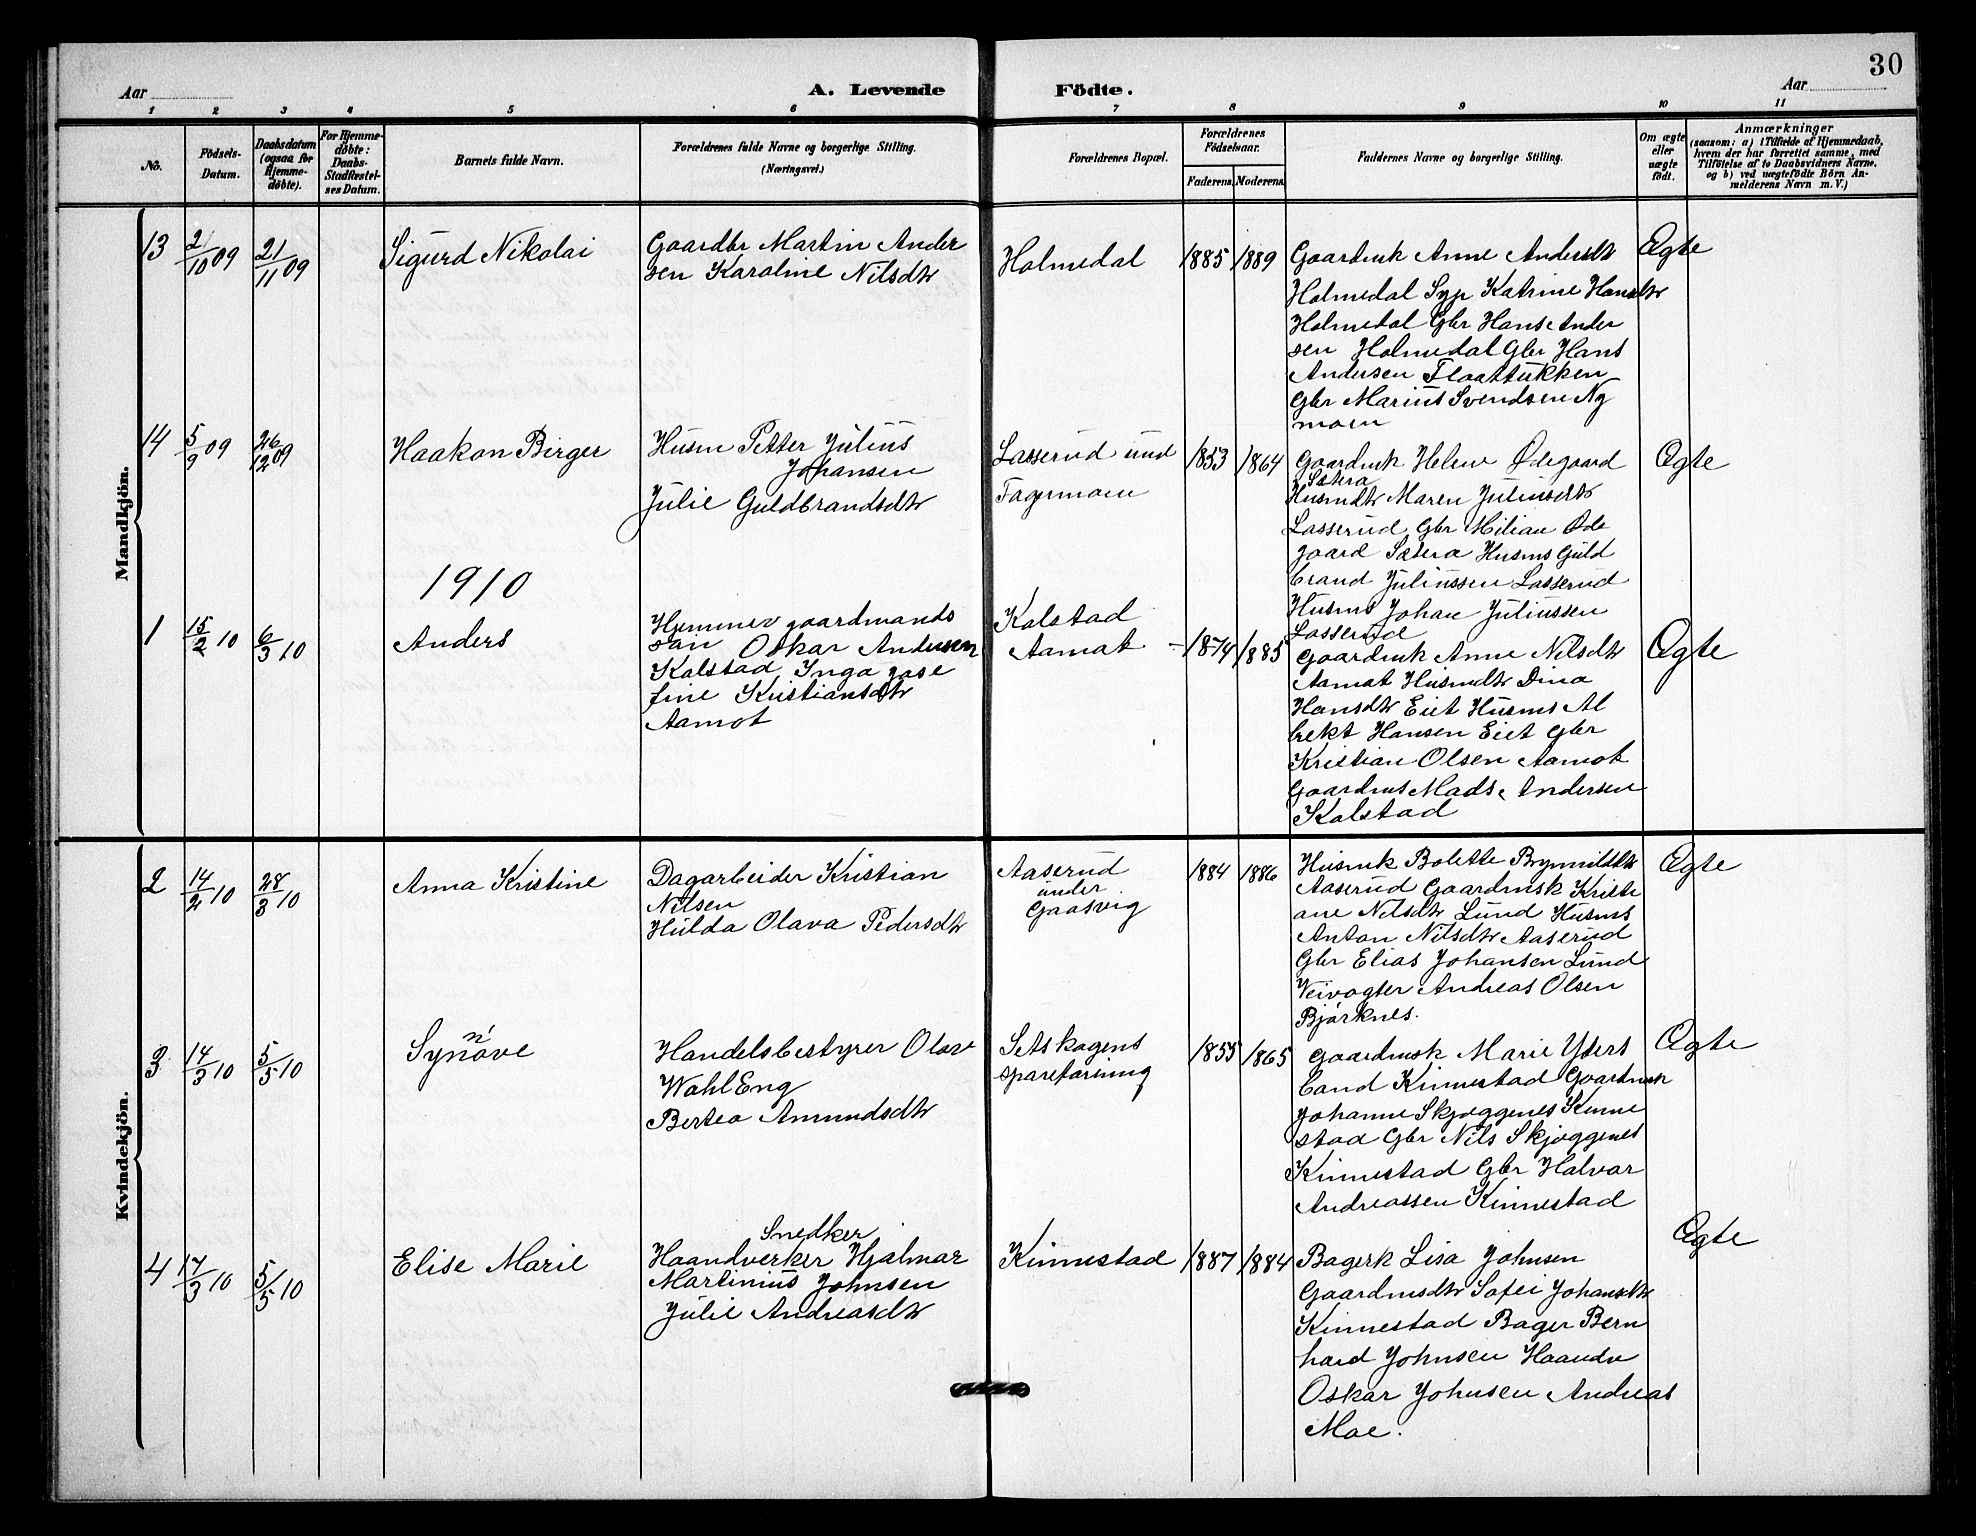 30
Aar
A. Levende Födte.
Aar
1 2 3 4 5 6 7 8 9 10 11
No.
Födsels-
Datum.
Daabsdatum
(ogsaa for
Hjemme-
döbte).
For Hjemme-
döbte:
Daabs-
Stadfæstel-
ses Datum.
Barnets fulde Navn.
Forældrenes fulde Navne og borgerlige Stilling.
(Næringsvei.)
Forældrenes Bopæl.
Forældrenes
Fødselsaar.
Faderens. Moderens.
Faddernes Navne og borgerlige Stilling.
Om ægte
eller
uægte
født.
Anmærkninger
(saasom: a) i Tilfælde af Hjemmedaab,
hvem der har forrettet samme, med
Tilföielse af to Daabsvidners Navne.
og b) ved uægtefödte Börn An-
melderens Navn m. V.)
Mandkjön.
13 2/10 09 21/11 09 Sigurd Nikolai
Gaardbr Martin Ander
sen Karoline Nilsdtr
Holmedal 1885 1889
Gaardmk Anne Andersdtr
Holmedal Syp Katrine Hansdtr
Holmedal Gbr Hans Ander
sen Holmedal Gbr Hans
Andersen Flaattukken
Gbr Marius Svendsen Ny
moen
Ægte
14 5/9 09 26/12 09 Haakon Birger
Husm Petter Julius
Johansen
Julie Guldbrandsdtr
Lasserud und
Fagermoen
1853 1864
Gaardmk Helene Ødegaard
Sætera
Husmdtr Maren Juliusdtr
Lasserud Gbr Milian Øde
gaard Sætera Husms Guld
brand Juliussen Lasserud
Husms Johan Juliussen
Lasserud
Ægte
1910
1 15/2 10 6/3 10 Anders
Hjemmev gaardmands
søn Oskar Andersen
Kolstad Inga Jose
fine Kristiansdtr
Aamot
Kolstad
Aamot
1874 1885
Gaardmk Anne Nilsdtr
Aamot Husmdtr Dina
Hansdtr Eiet Husms Al
brekt Hansen Eiet Gbr
Kristian Olsen Aamot
Gaardms Mads Andersen
Kolstad
Ægte
Kvindekjön.
2 14/2 10 28/3 10 Anna Kristine
Dagarbeider Kristian
Nilsen
Hulda Olava Pedersdtr
Aaserud
under
Gaasvig
1884 1886
Husmk Bolette Brynnildtr
Aaserud Gaardmsk Kristi
ane Nilsdtr Lund Husms
Anton Nilsdtr Aaserud
Gbr Elias Johansen Lund
Veivogter Andreas Olsen
Bjørknes.
Ægte
3 14/3 10 5/5 10 Synnøve
Handelsbestyrer Olav
Wahl Eng
Bertea Amundsdtr
Setskogens
spareforening
1855 1865
Gaardmsk Marie Ysters
land Kinnestad Gaardmsk
Johanne Skjøggenes Kinne
stad Gbr Nils Skjøggenes
Kinnestad Gbr Halvar
Andreassen Kinnestad
Ægte
4 17/3 10 5/5 10 Elise Marie
Snedker
Haandverker Hjalmar
Martinius Johnsen
Julie Andreasdtr
Kinnestad 1887 1884
Bagerk Lisa Johnsen
Gaardmsdtr Sofei Johansdtr
Kinnestad Bager Bern
hard Johnsen Haandv
Oskar Johnsen Andreas
Moe.
Ægte